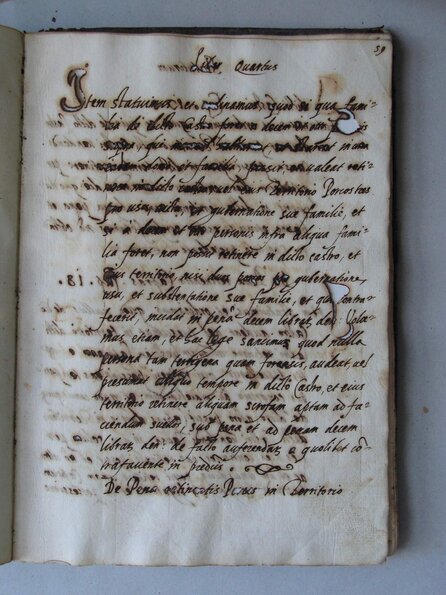 59
Liber Quartus
Item statuimus, et ordinamus, quod si qua fami=
lia de dicto Castro foret a decem et
que, qui
et familie possit et valeat reti=
nere in dicto castro, vel eius Territorio Porcos tres
pro usu, et gubernatione sue familie, et
si a decem et personis infra aliqua fami
lia foret, non possit retinere in dicto castro, et
eius territorio, nisi duos porcos pro gubernatione,
usu, et substentatione sue familie, et qui contra
fecerit, incidat in pena decem librar. den. Vole=
mus etiam, et hac lege sancimus quod nulla
persona tam terrigena quam forensis, audeat, vel
presumat aliquo tempore in dicto Castro, et eius
territorio retinere aliquam scrofam, aptam ad fa=
ciendum suellos, sub pena et ad penam decem
librar. den. de facto auferendar. a quolibet co=
trafaciente in predictis.
De Pena retinentis Porcos in Territorio